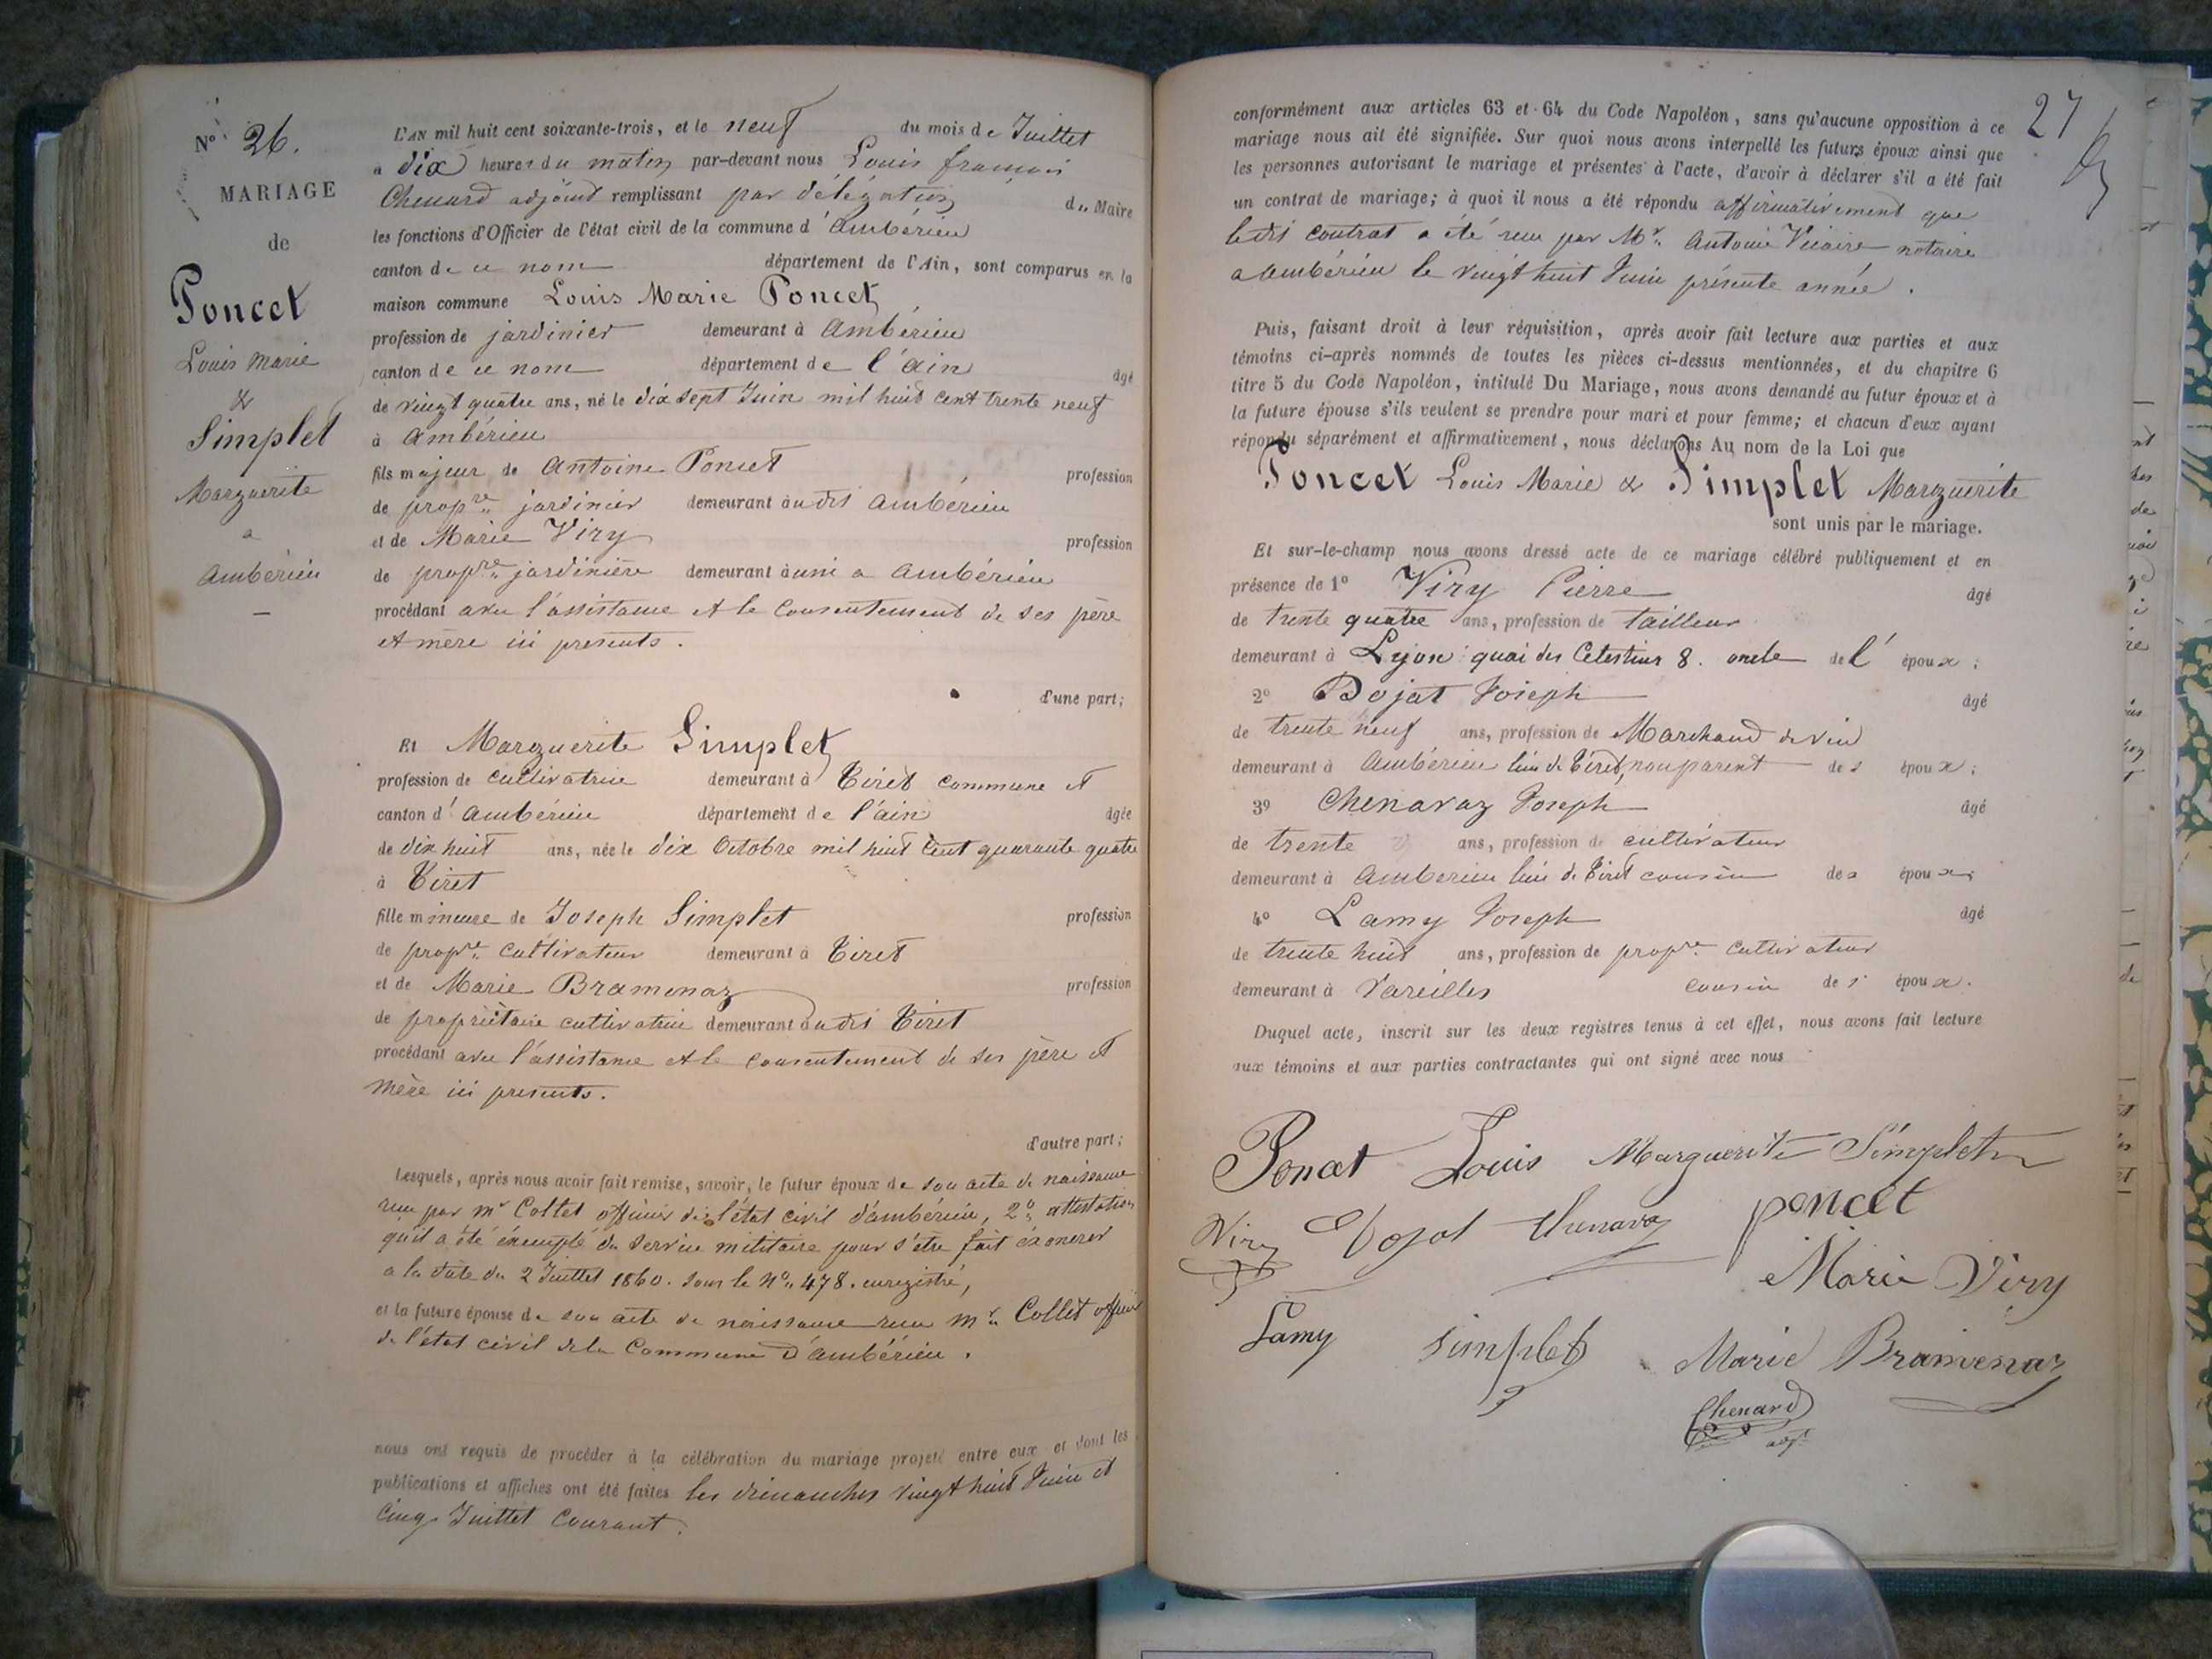 N° 26.
MARIAGE
de
Poncet
Louis Marie
&
Simplet
Marguerite
a
Ambérieu
L'AN mil huit cent soixante-trois, et le neuf du mois de Juillet
a dix heures du matin par-devant nous Louis francois
Chenard adjoint remplissant par délégation du Maire
les fonctions d'Officier de l'état civil de la commune d'Ambérieu
canton de ce nom département de l'Ain, sont comparus en la
maison commune Louis Marie Poncet
profession de jardinier demeurant à Ambérieu
canton de ce nom département de l'Ain âgé
de vingt quatre ans, né le dix sept Juin mil huit cent trente neuf
à Ambérieu
fils majeur de Antoine Poncet profession
de propre jardinier demeurant audit Ambérieu
et de Marie Viry profession
de propre jardinière demeurant aussi a Ambérieu
procédant avec l'assistance et le consentement de ses père
et mère ici presents.
d'une part;
Et Marguerite Simplet
profession de cultivatrice demeurant à Tiret commune et
canton d'Ambérieu département de l'ain âgée
de dix huit ans, née le dix Octobre mil huit cent quarante quatre
à Tiret
fille mineure de Joseph Simplet profession
de propre cultivateur demeurant à Tiret
et de Marie Bramenaz profession
de propriétaire cultivatrice demeurant audit Tiret
procédant avec l'assistance et le consentement de ses père et
mère ici presents.
d'autre part;
Lesquels, après nous avoir fait remise, savoir, le futur époux de son acte de naissance
reçu par mr Collet officier de l'état civil d'ambérieu, 2° attestation
qu'il a été éxempté du service militaire pour s'etre fait éxonerer
a la date du 2 Juillet 1860. sous le N° 478. enregistré,
et la future épouse de son acte de naissance reçu mr Collet officier
de l'état civil de la Commune d'ambérieu.
nous ont requis de procéder à la célébration du mariage projeté entre eux et dont les
publications et affiches ont été faites les dimanches vingt huit Juin et
cinq Juillet courant.
27
conformément aux articles 63 et 64 du Code Napoléon, sans qu'aucune opposition à ce
mariage nous ait été signifiée. Sur quoi nous avons interpellé les futurs époux ainsi que
les personnes autorisant le mariage et présentes à l'acte, d'avoir à déclarer s'il a été fait
un contrat de mariage; à quoi il nous a été répondu affirmativement que
ledit contrat a été reçu par Mr. Antoine Vicaire notaire
a Ambérieu le vingt huit Juin présente année.
Puis, faisant droit à leur réquisition, après avoir fait lecture aux parties et aux
témoins ci-après nommés de toutes les pièces ci-dessus mentionnées, et du chapitre 6
titre 5 du Code Napoléon, intitulé Du Mariage, nous avons demandé au futur époux et à
la future épouse s'ils veulent se prendre pour mari et pour femme; et chacun d'eux ayant
répondu séparément et affirmativement, nous déclarons Au nom de la Loi que
Poncet Louis Marie & Simplet Marguerite
sont unis par le mariage.
Et sur-le-champ nous avons dressé acte de ce mariage célébré publiquement et en
présence de 1° Viry Pierre âgé
de trente quatre ans, profession de tailleur
demeurant à Lyon quai des Celestins 8. oncle de l'époux;
2° Dojat Joseph âgé
de trente neuf ans, profession de Marchand de vin
demeurant à Ambérieu lieu de Tiret, non parent des époux;
3° Chenavaz Joseph âgé
de trente ans, profession de cultivateur
demeurant à Amberieu lieu de Tiret cousin des époux;
4° Lamy Joseph âgé
de trente huit ans, profession de propre cultivateur
demeurant à Vareilles cousin des époux.
Duquel acte, inscrit sur les deux registres tenus à cet effet, nous avons fait lecture
aux témoins et aux parties contractantes qui ont signé avec nous
Poncet Louis Marguerite Simplet
Viry Dojat Chenavaz poncet
Marie Viry
Lamy simplet Marie Bramenaz
Chenard
adjt